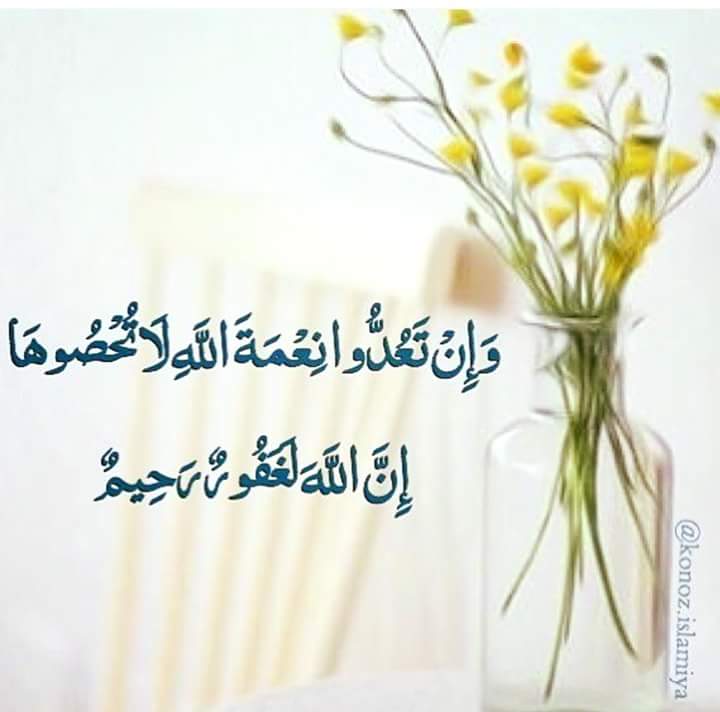 وَإِنْ تَعُدُّوا نِعْمَةَ اللَّهِ لَا تُحْصُوهَا
إِنَّ اللَّهَ لَغَفُورٌ رَحِيمٌ
@konoz.islamiya